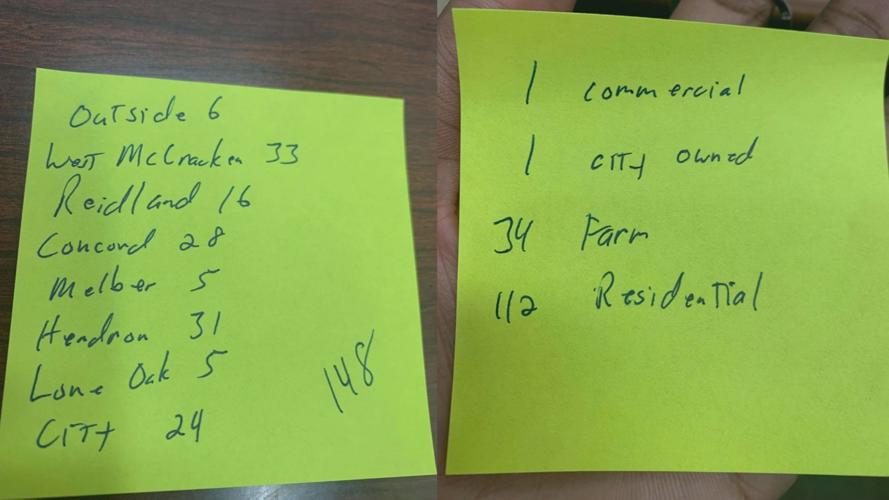 Outside 6
West McCracken 33
Reidland 16
Concord 28
Melber 5
Hendron 31
Lone Oak 5
City 24
148
1 Commercial
1 City owned
34 Farm
112 Residential